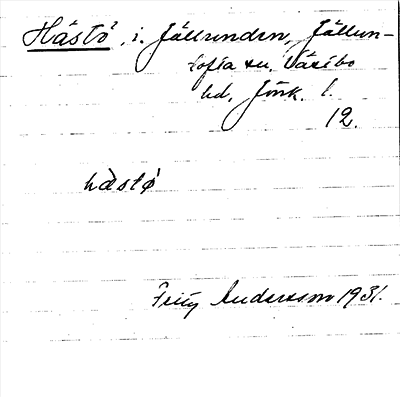 Hästö, i. Jällunden, Jällun-
tofta sn. Västbo
hd, Jönk. l.
12.
hästö
Fritz Andersson 1931.